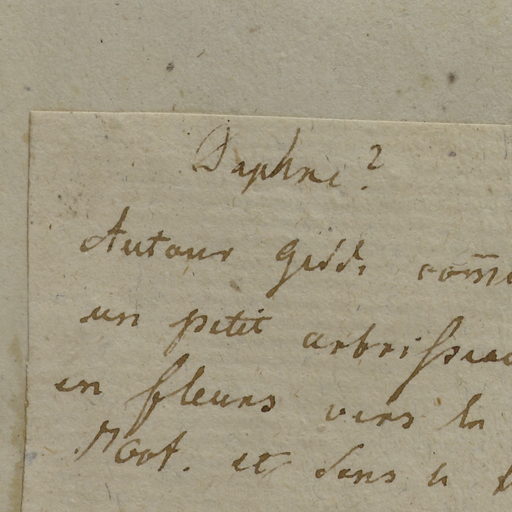 Daphne?
Autour Gidda com̄e
un petit arbrisseau
en fleurs vers la
Moof. et dans le